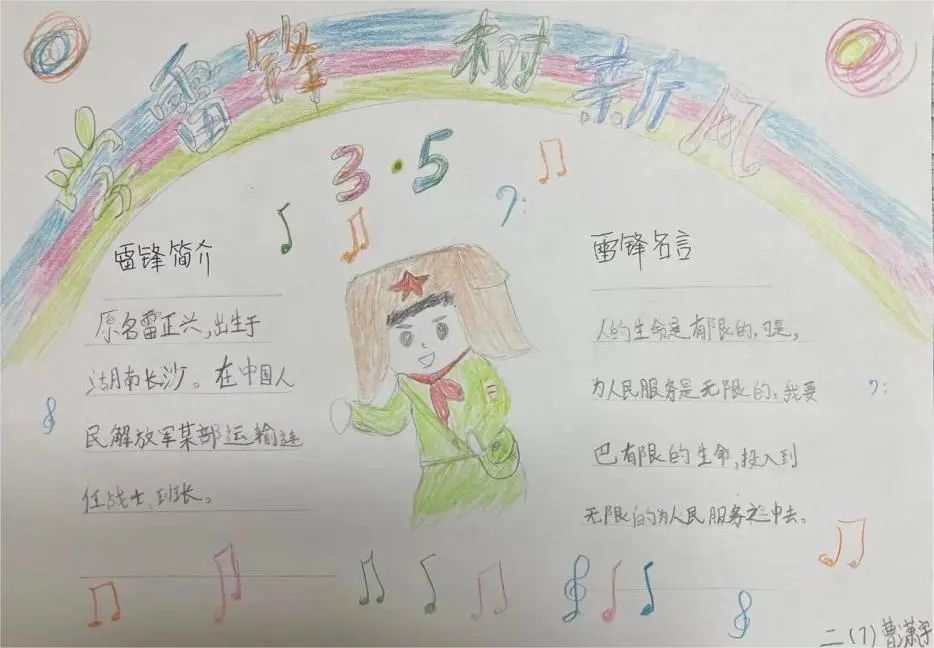 学雷锋 树新风
3·5
雷锋简介
原名雷正兴,出生于
湖南长沙。在中国人
民解放军某部运输连
任战士、班长。
雷锋名言
人的生命是有限的,可是,
为人民服务是无限的,我要
巴有限的生命,投入到
无限的为人民服务之中去。
二(7)曹潇宇